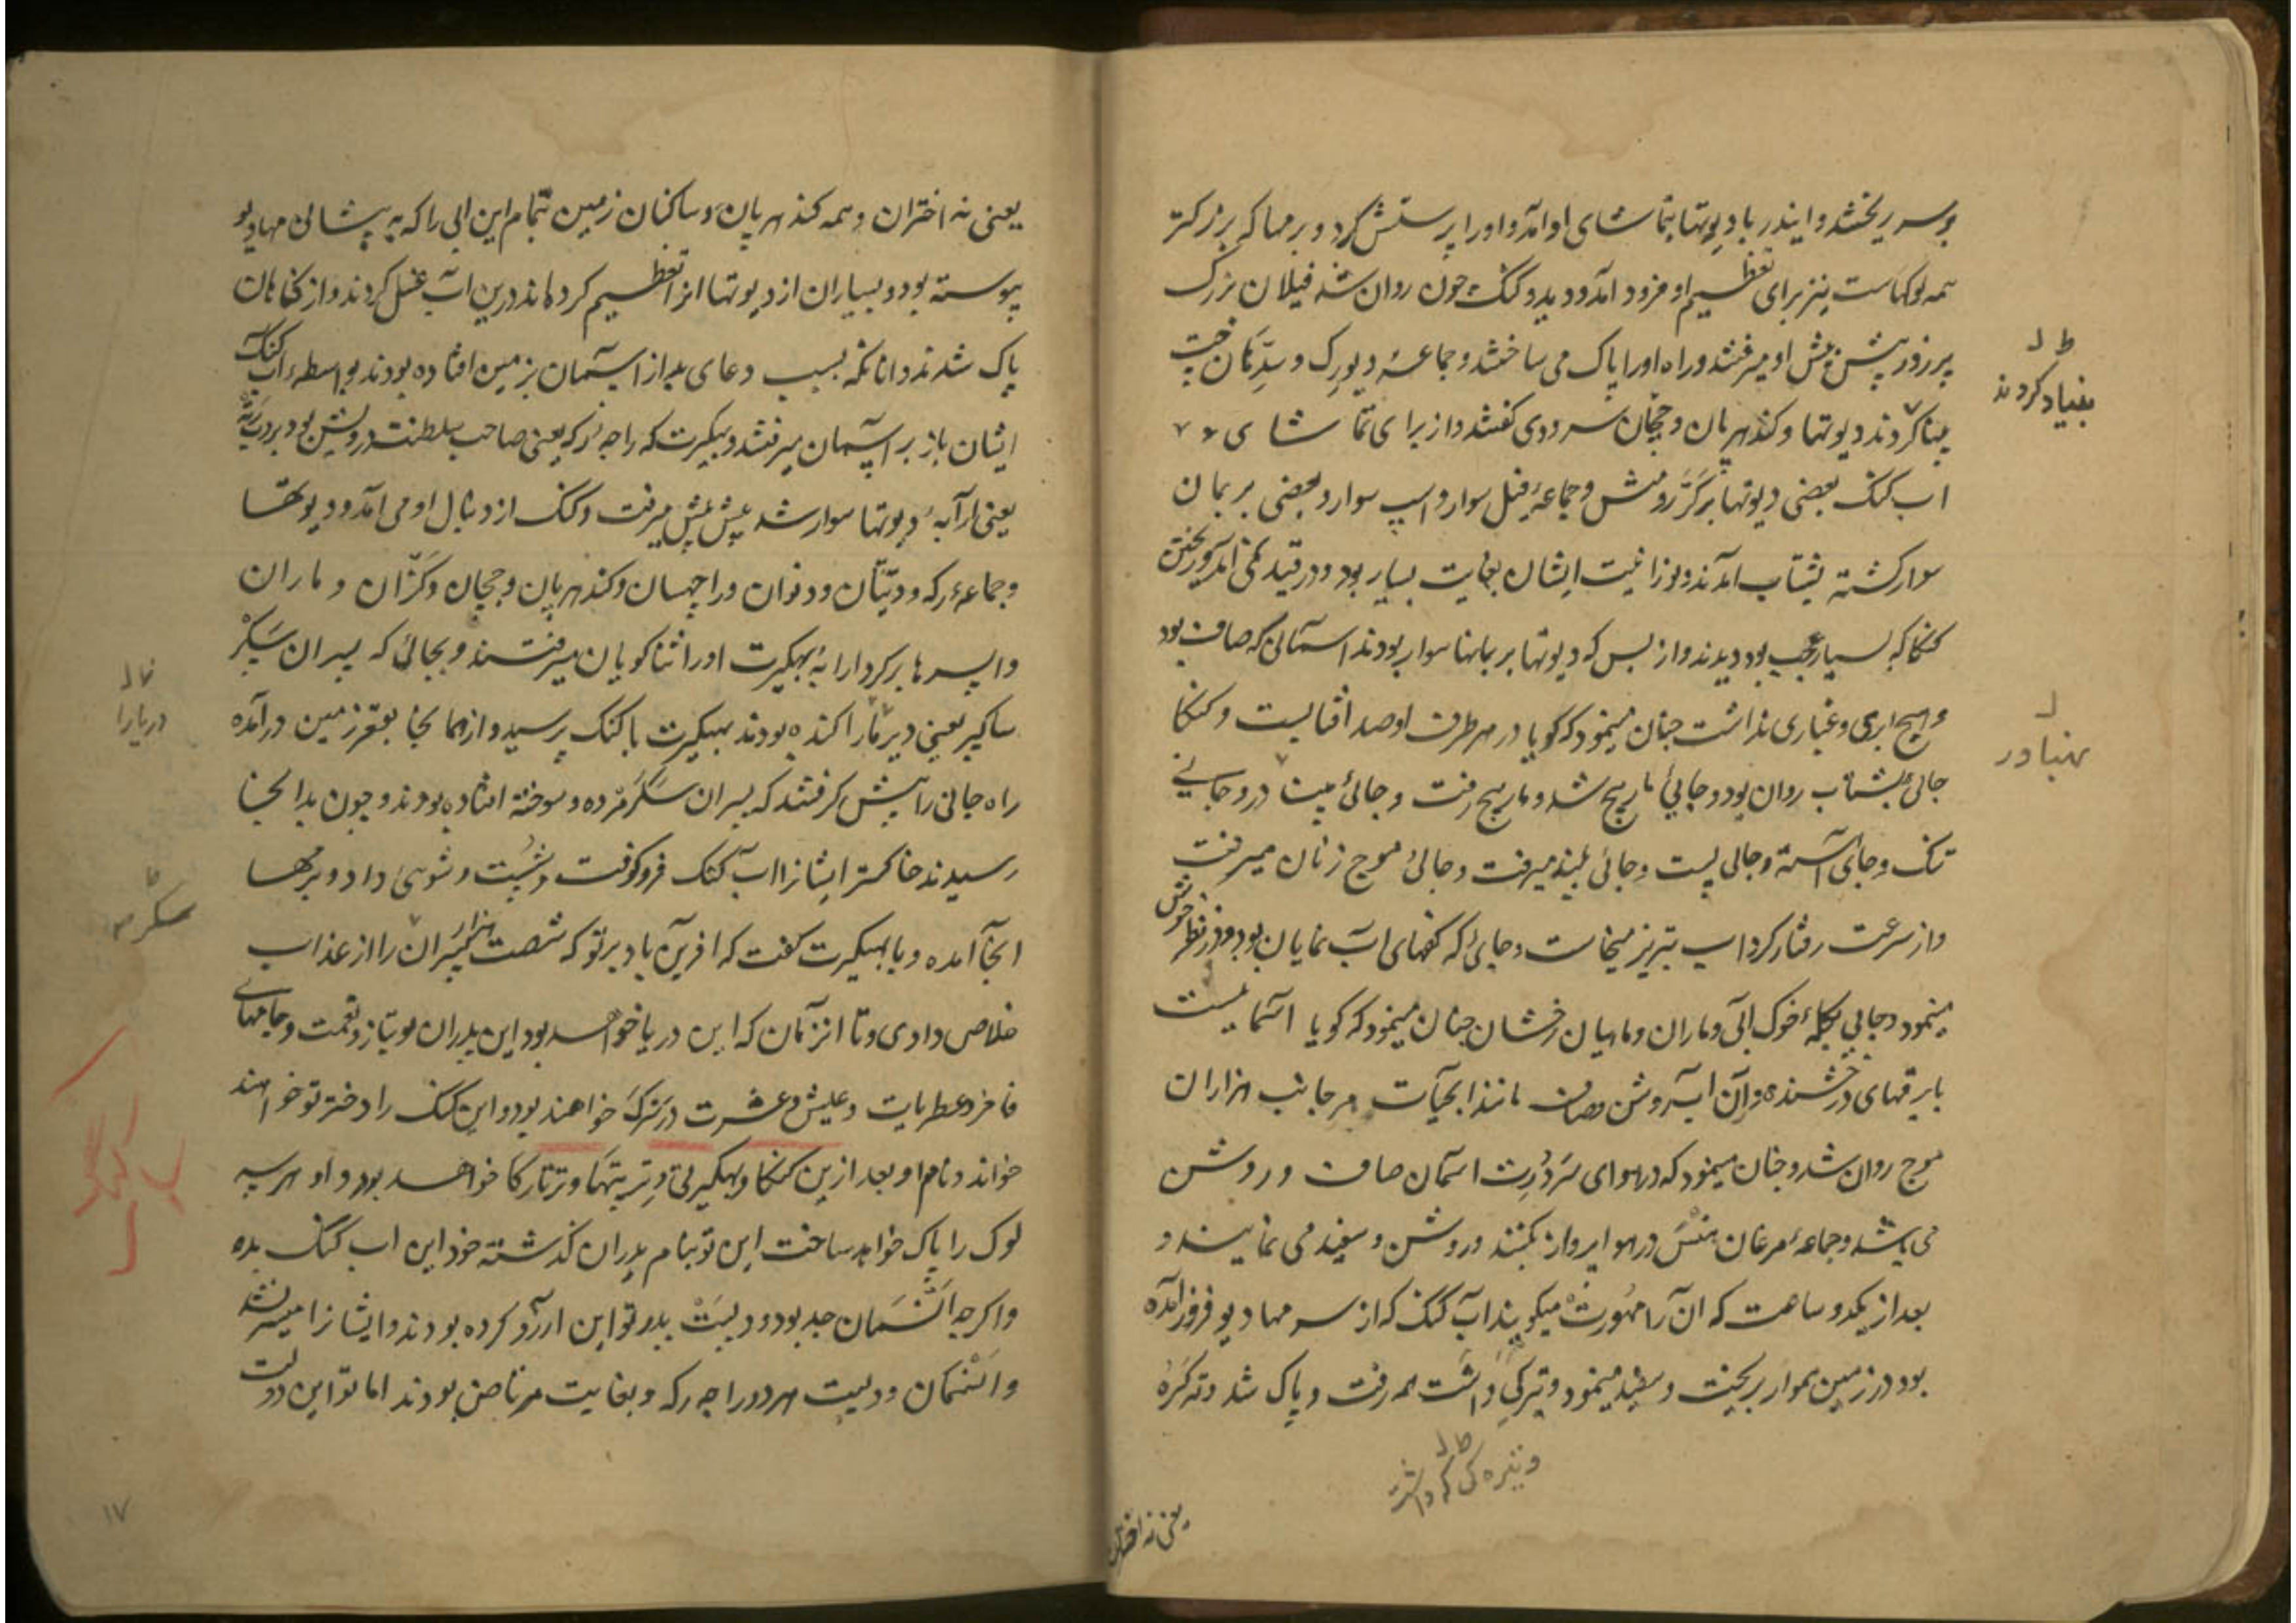 بوسه ریختند و ایندر با دیوتها بتماشای او آمد و او را پرستش کرد و برمها که بزرگتر
همه لوکهاست نیز برای تعظیم او فرود آمد و دید و گنگ چون روان شد فیلان بزرگ
پر زور پیش پیش او میرفتند و راه او را پاک می ساختند و جماعهٔ دیورک و سدّهان
بنا کردند دیوتها و کندهرپان و چچان سرودی گفتند و از برای تماشای
اب گنگ بعضی دیوتها بر گرّ و منش و جماعهٔ فیل سوار و اسپ سوار و بعضی بر بمان
سوار گشته بشتاب آمدند و نورانیت ایشان بغایت بسیار بود و در قید
گنگا که بسیار عجب بود دیدند و از بس که دیوتها بر بمانها سوار بودند آسمانی که صاف بود
و هیچ ابری و غباری نداشت چنان مینمود که گویا در هر طرف او صد آفتابست و گنگا
جائی بشتاب روان بود و جایی مارپیچ شد و مارپیچ رفت و جائی
تنک و جائی آهسته و جائی پست و جائی بلند میرفت و جائی موج زنان میرفت
و از سرعت رفتار گرداب تیز تیز میخاست و جائی که کفهای آب نمایان بود و در نظر خوش
مینمود و جایی بجملهٔ خوک آبی و ماران و ماهیان رخشان چنان مینمود که گویا آسمانیست
با برقهای درخشنده و آن آب روشن و صاف مانند آبحیات هر جانب هزاران
موج روان شد و چنان مینمود که در هوای سَرَدرِت آسمان صاف و روشن
می باشد و جماعهٔ مرغان هنس در هوا پرواز بکنند و روشن و سفید می نمایند و
بعد از یکدو ساعت که آن را مهورت میگویند آب گنگ که از سر مهادیو فرود آمده
بود در زمین هموار بریخت و سفید مینمود و تیرگی داشت همه رفت و پاک شد و نه گره
ط د
بنیاد کردند
پهناور
و تیره گی که داشت
یعنی نه اختران
یعنی نه اختران و همه کندهرپان و ساکنان زمین تمام این آبی را که به پیشانی مهادیو
پیوسته بود و بسیاران از دیوتها آنرا تعظیم کرده‌اند درین آب غسل کردند و از گناهان
پاک شدند و آنانکه بسبب دعای بد از آسمان بزمین افتاده بودند بواسطهٔ آب گنگ
ایشان باز بر آسمان میرفتند و بهگیرت که راجه رکه یعنی صاحب سلطنت درویش بود بر
یعنی ارابهٔ دیوتها سوار شده پیش پیش میرفت و گنگ از دنبال او می آمد و دیوتها
و جماعهٔ رکه و دیتان و دنوان و راچهسان و کندهرپان و چچان و گرّان و ماران
و اپسرها بر کرد ارابهٔ بهگیرت او را ثناگویان میرفتند و بجائی که پسران سگر
ساگر یعنی دریا را کنده بودند بهگیرت با گنگ برسید و از همانجا بقعر زمین درآمده
راه جائی را پیش گرفتند که پسران سگر مرده و سوخته افتاده بودند و چون بدانجا
رسیدند خاکستر ایشانرا آب گنگ فرو گرفت و شست و شوئی داد و برمها
آنجا آمده و با بهگیرت گفت که آفرین باد بر تو که شصت هزار پسران را از عذاب
خلاص دادی و تا آن زمان که این دریا خواهد بود این پدران تو بناز و نعمت و جامهای
فاخر و عطریات و عیش و عشرت در سرگ خواهند بود و این گنگ را دختر تو خواهند
خواند و نام او بعد ازین گنگا و بهگیرتی و تریپتهگا و ترتارکا خواهد بود و او هر سه
لوک را پاک خواهد ساخت این تو بنام پدران گذشته خود این آب گنگ بده
و اگرچه انشمان جد بود و دلیپ پدر تو این آرزو کرده بودند و ایشانرا میسر نشد
و انشمان و دلیپ هر دو راجه رکه و بغایت مرتاض بودند اما تو این دولت
دریا را
سگر
۱۷